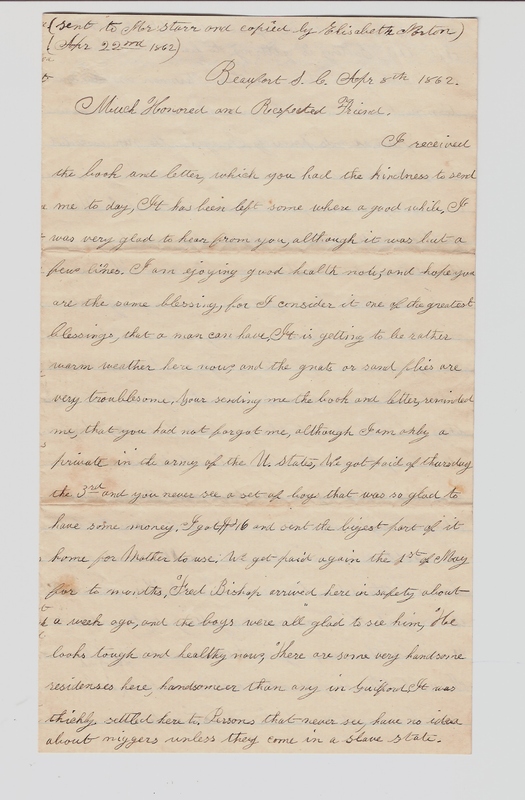 (sent to Mr Starr and copied by Elisabeth Norton)
(Apr 22nd 1862)
Beaufort S. C. Apr 8th 1862.
Much Honored and Respected Friend.
I received
the book and letter, which you had the kindness to send
me to day, It has been left some where a good while, I
was very glad to hear from you, although it was but a
few lines. I am ejoying good health now, and hope you
are the same blessing, for I consider it one of the greatest
blessings, that a man can have, It is getting to be rather
warm weather here now, and the gnats or sand flies are
very troublesome, Your sending me the book and letter, reminded
me, that you had not forgot me, although I am only a
private in the army of the U. States, We got paid of thursday
the 3rd and you never see a set of boys that was so glad to
have some money. I got $26 and sent the bigest part of it
home for Mother to use. We get paid again the 1st of May
for to months, Fred Bishop errived here in safety about
a week ago, and the boys were all glad to see him, He
looks tough and healthy now, There are some very handsome
residenses here, handsomeer than any in Guilford, It was
thickly settled here to, Persons that never see, have no idea
about niggers unless they come in a slave state.